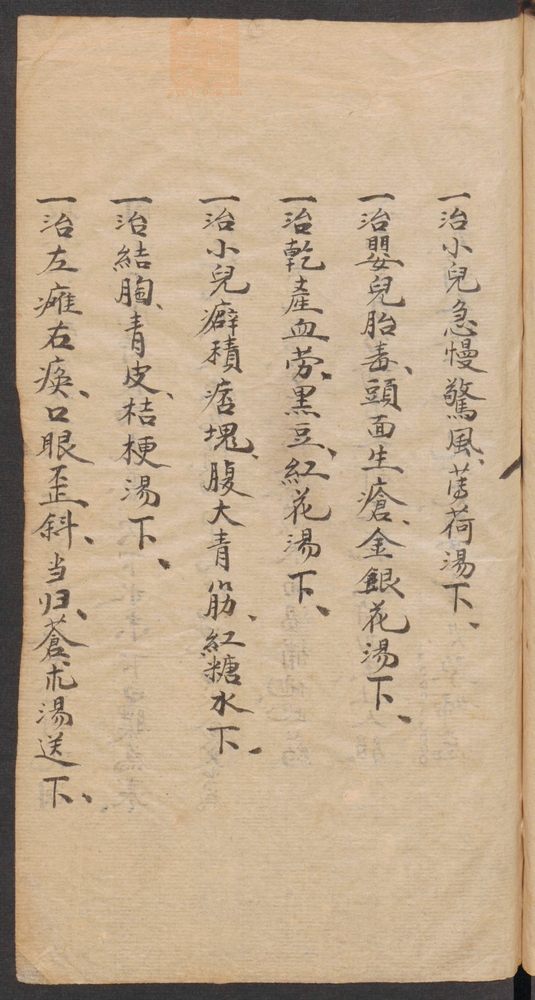 一治小兒急慢驚風、薄荷湯下、
一治嬰兒胎毒、頭面生瘡、金銀花湯下、
一治乾產血劳、黑豆、紅花湯下、
一治小兒癖積痞塊、腹大青筋、紅糖水下、
一治結胸、青皮、桔梗湯下、
一治左瘫右痪、口眼歪斜、当归、蒼朮湯送下、